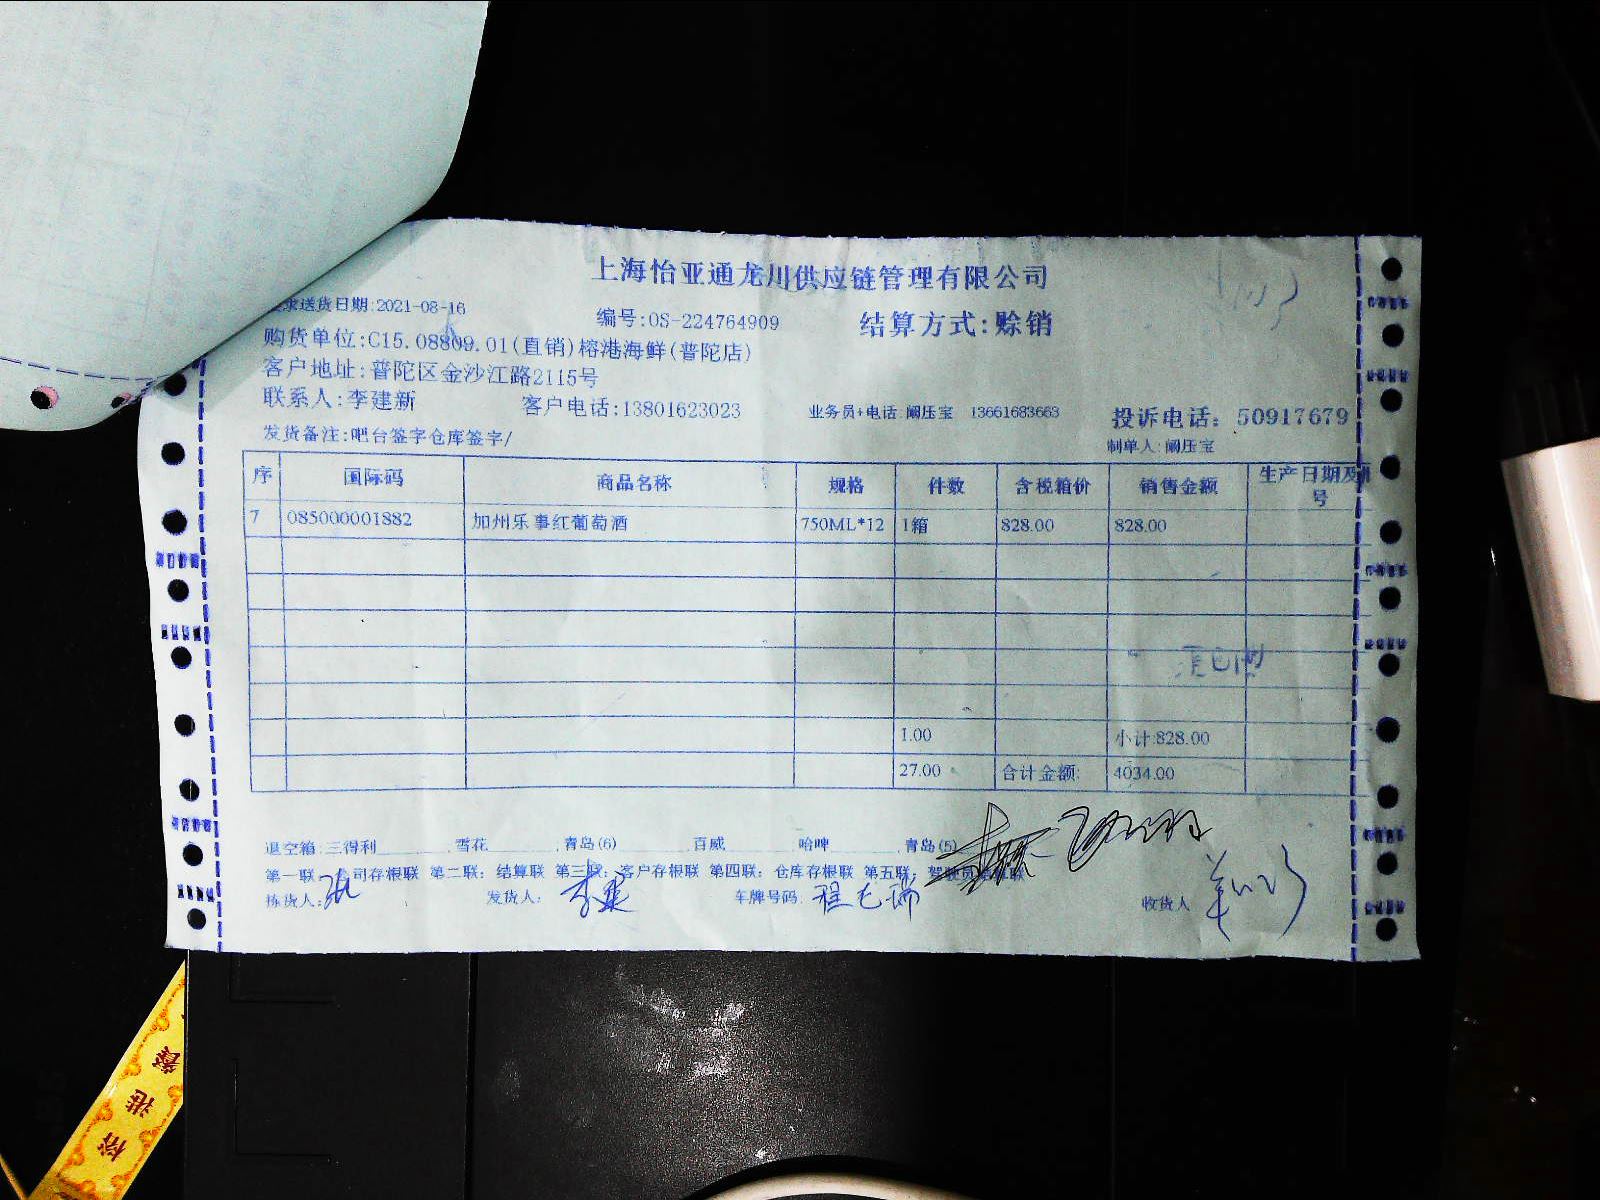 上海怡亚通龙川供应链管理有限公司
求送货日期:2021-08-16
编号:OS-224764909 结算方式:赊销
购货单位:C15.08809.01(直销)榕港海鲜(普陀店)
客户地址:普陀区金沙江路2115号
联系人:李建新 客户电话:13801623023 业务员+电话:阚压宝 13661683663 投诉电话: 50917679
发货备注:吧台签字仓库签字/ 制单人:阚压宝
序 国际码 商品名称 规格 件数 含税箱价 销售金额 生产日期及 号
7 085000001882 加州乐事红葡萄酒 750ML*12 1箱 828.00 828.00
1.00 小计:828.00
27.00 合计金额: 4034.00
退空箱:三得利 雪花 青岛(6) 百威 哈啤 青岛(5)
第一联: 司存根联 第二联: 结算联 第三联: 客户存根联 第四联: 仓库存根联 第五联: 驾驶员
拣货人: 发货人: 车牌号码: 收货人
榕港餐